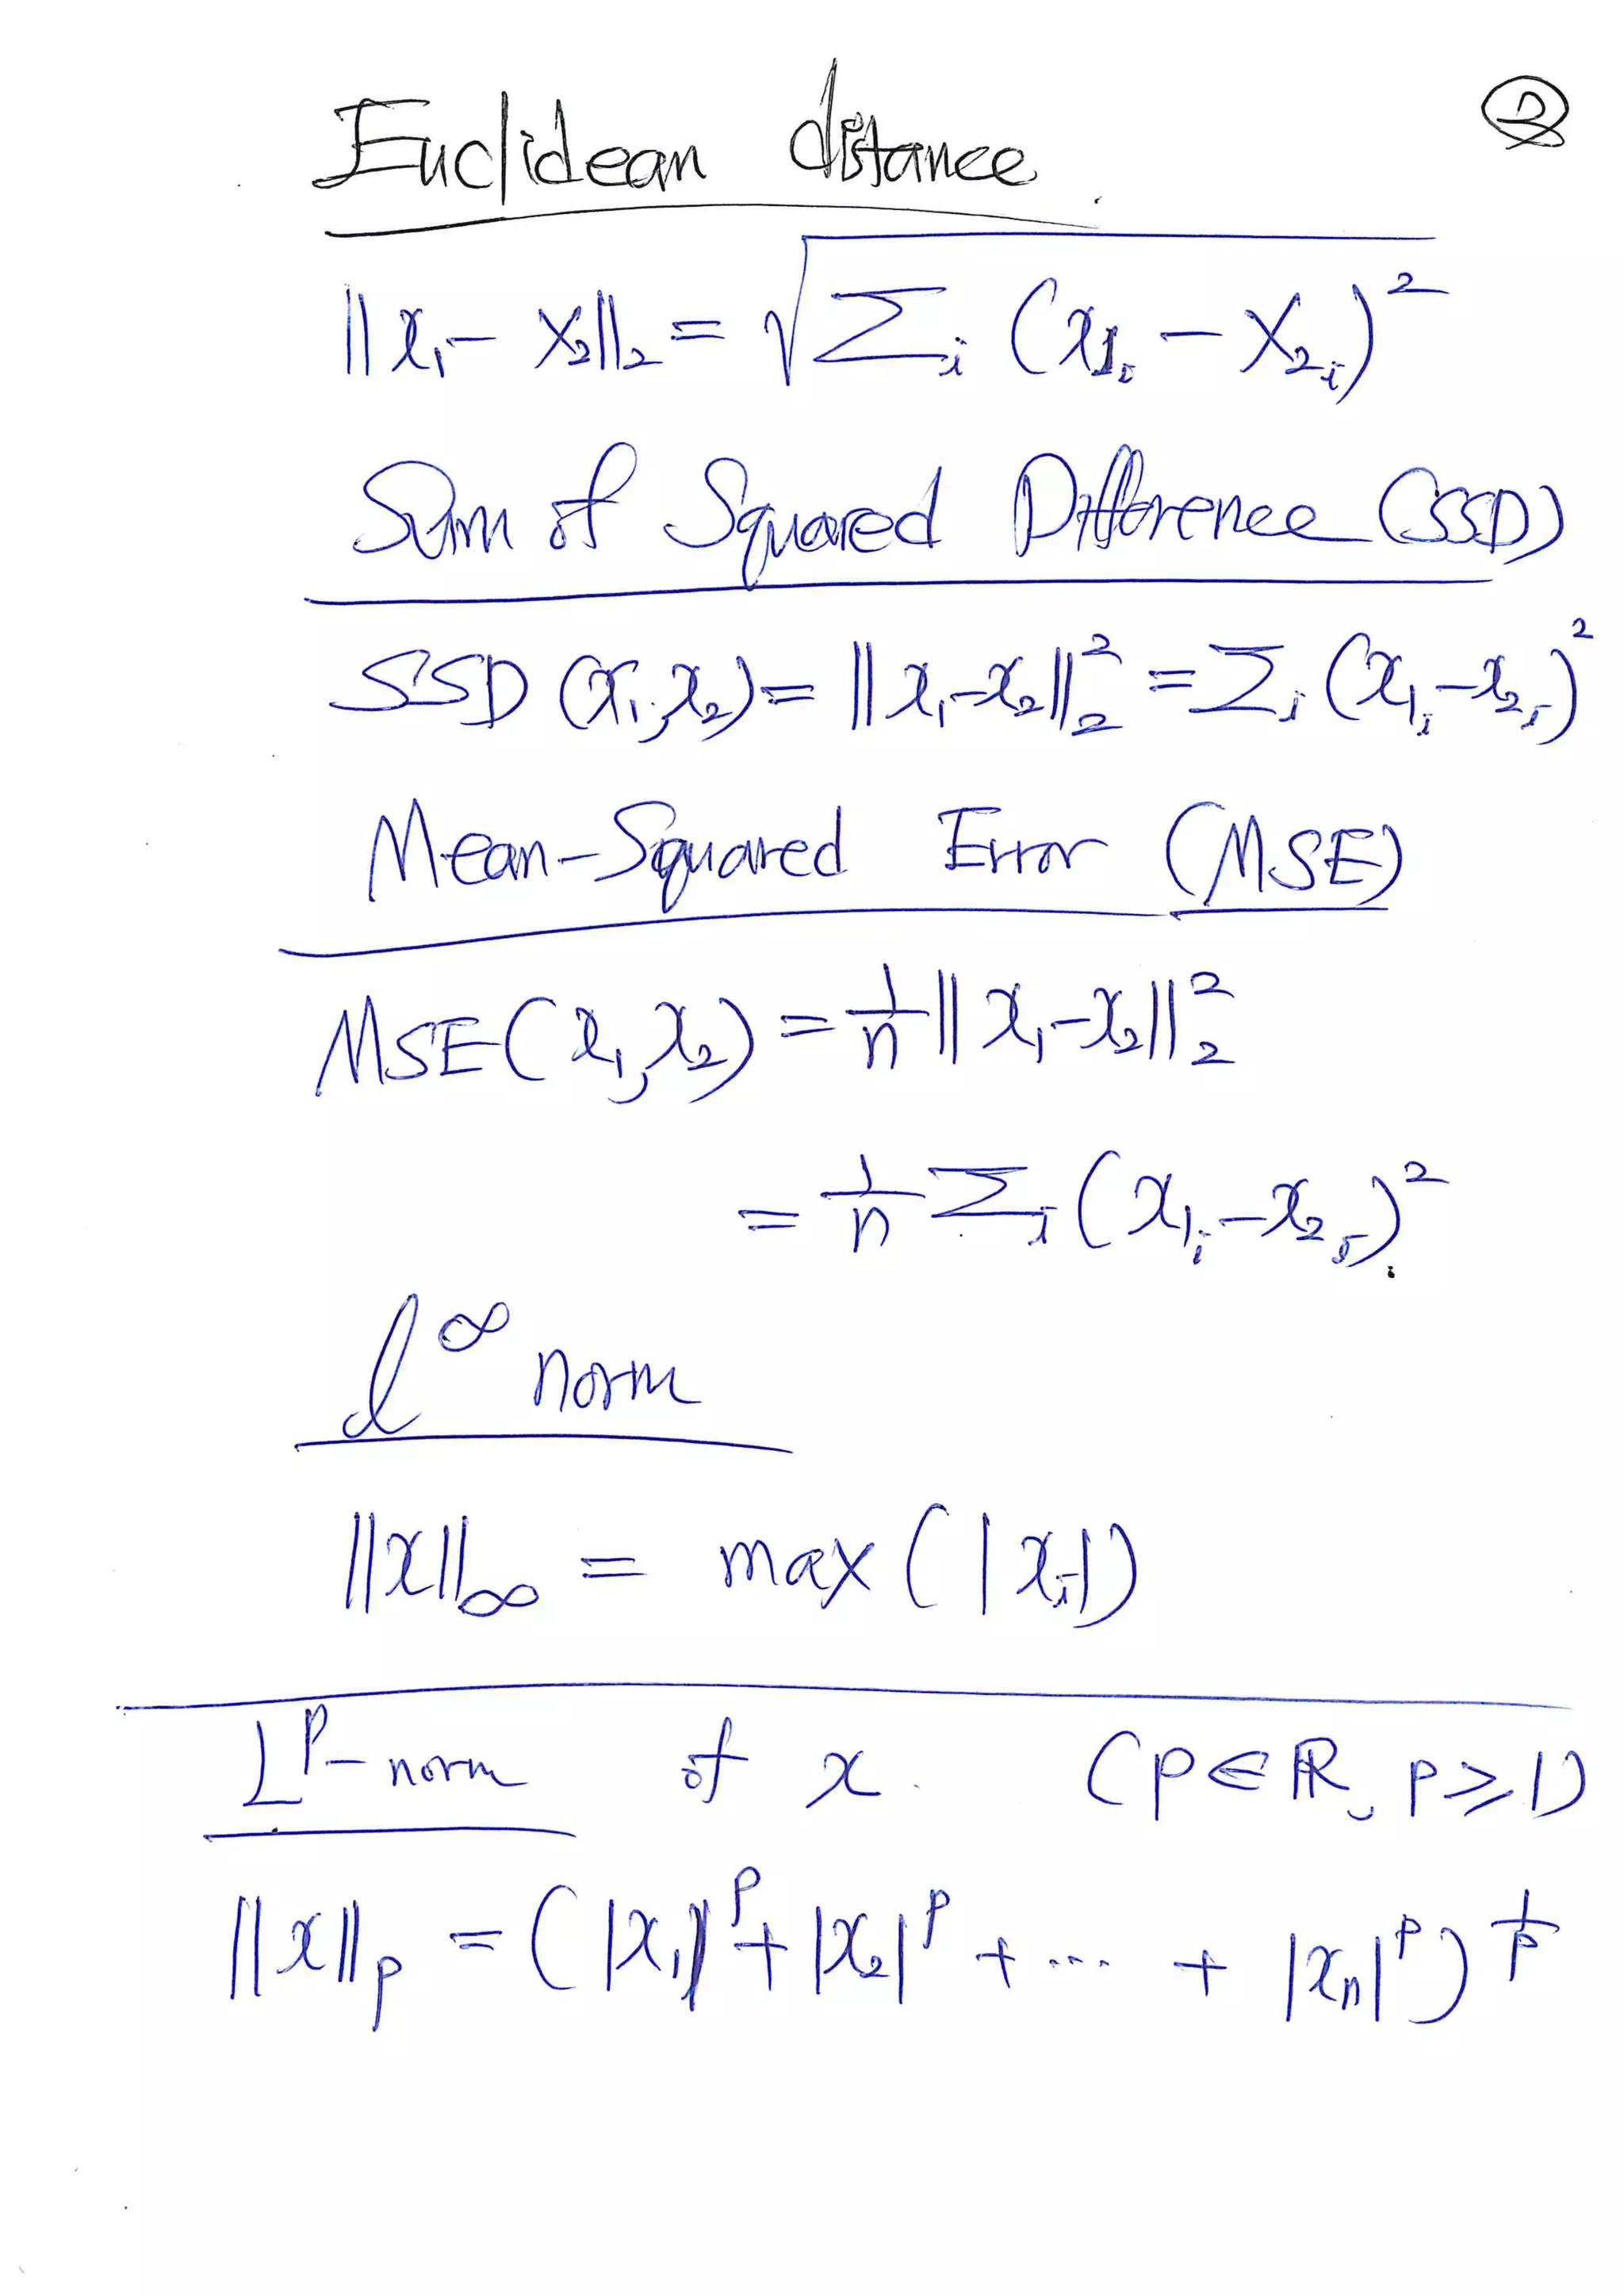 ②
Euclidean distance
‖x₁ - x₂‖₂ = √(Σᵢ (x₁ᵢ - x₂ᵢ)²)
Sum of Squared Difference (SSD)
SSD (x₁, x₂) = ‖x₁-x₂‖₂² = Σᵢ (x₁ᵢ -x₂ᵢ)²
Mean-Squared Error (MSE)
MSE(x₁, x₂) = 1/n ‖x₁-x₂‖₂²
= 1/n Σᵢ (x₁ᵢ -x₂ᵢ)²
l^∞ norm
‖x‖∞ = max(|xᵢ|)
L^p-norm of x (p∈ℝ, p⩾1)
‖x‖ₚ = (|x₁|^p + |x₂|^p + ··· + |xₙ|^p)^(1/p)